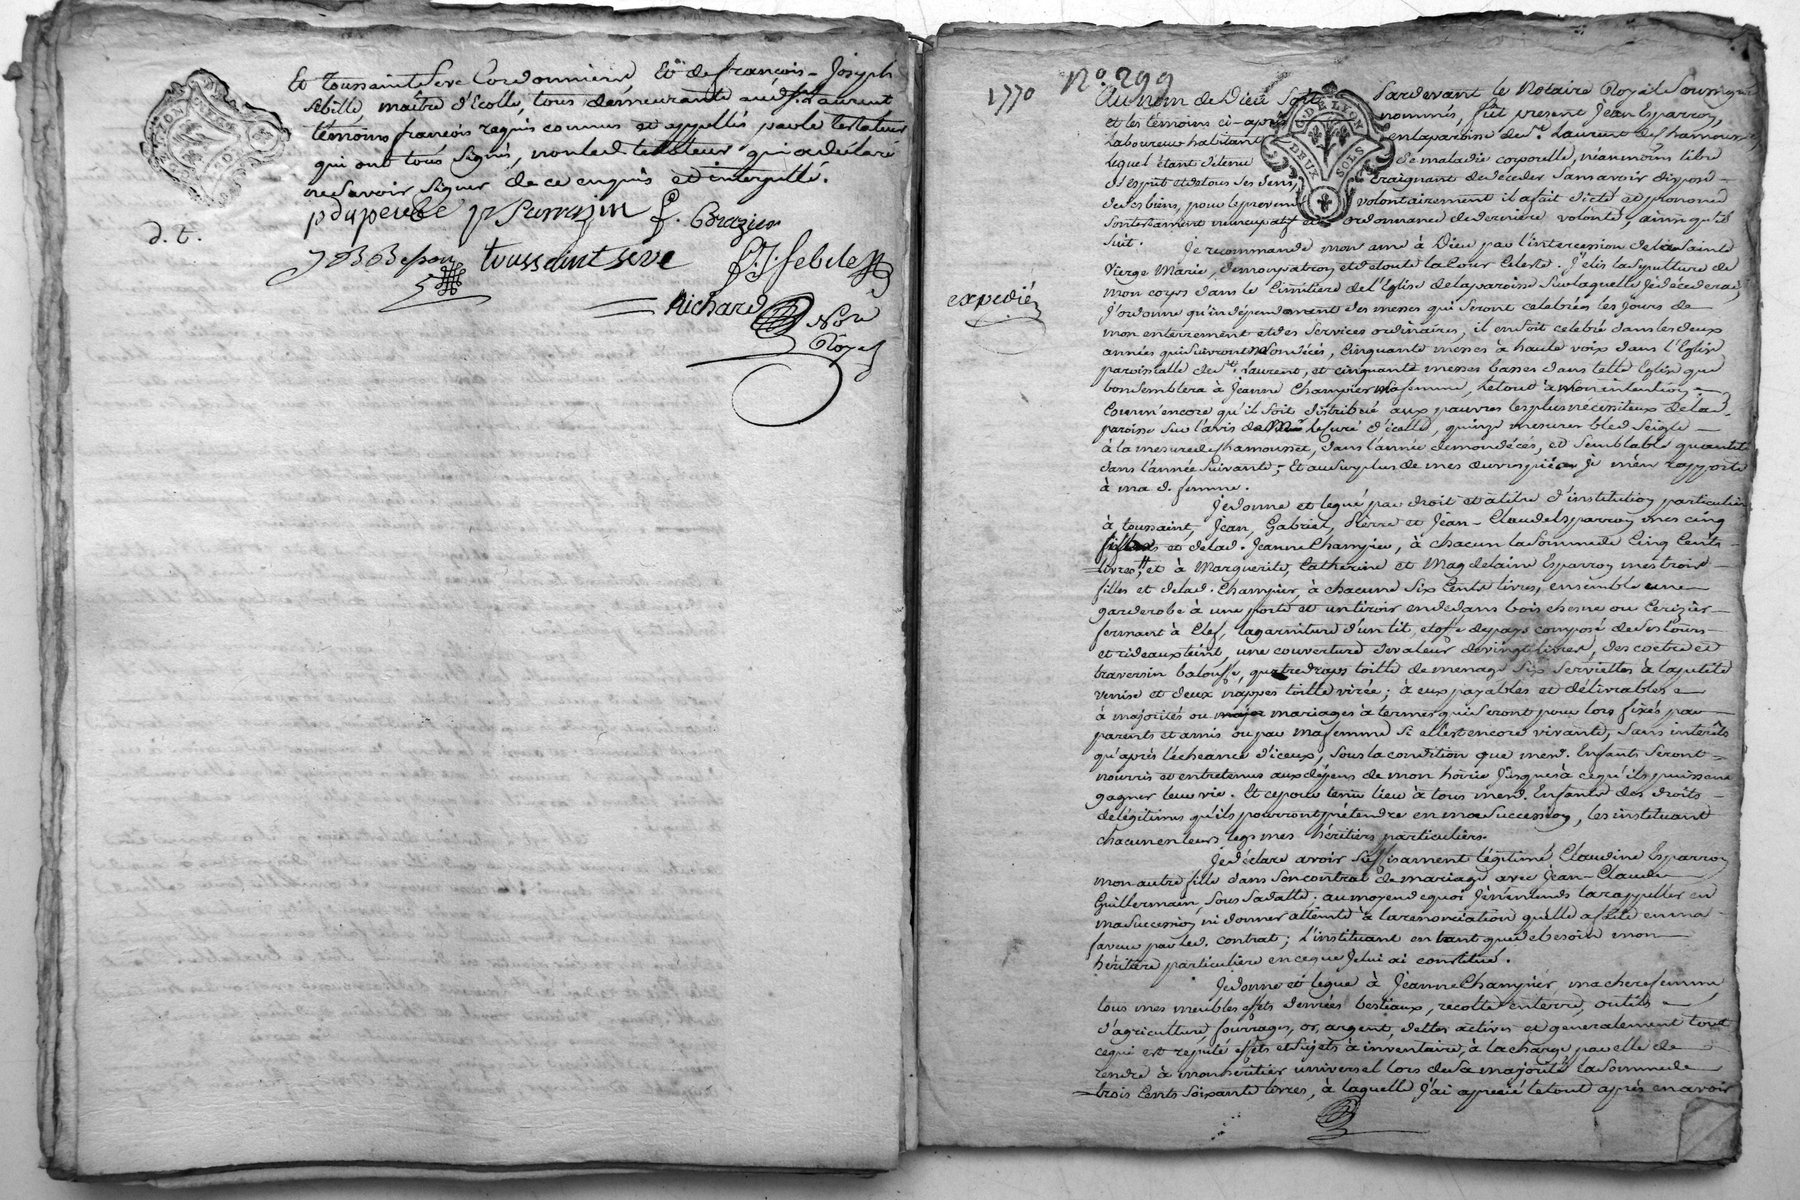 Et toussaint Seve Cordonniers Et de françois-Joseph
Sebille maître d'Ecolle, tous demeurants aud. St Laurent
témoins francois requis connus et appellés par le testateur
qui ont tous signés, non led. testateur qui a declaré
ne savoir signer de ce enquis et interpellé.
pdupeuble p Sarrazin f. Brazier
d. t.
J B Besson toussaint seve f. J. Sebille
Richard Nore
Royal
1770
No. 299
G. DE LYON
DEUX SOLS
Au nom de Dieu Soit Pardevant le Notaire Royal Soussigné
et les témoins ci-après nommés, fût present Jean Esparron
Laboureur habitant en la paroisse de St Laurent de Chamousset,
lequel étant detenu de maladie corporelle, néanmoins libre
d'esprit et de tous ses sens, craignant de déceder sans avoir disposé
de ses biens, pour le prevenir volontairement il a fait dicté et prononcé
son testament nuncupatif et ordonnance de derniere volonté, ainsi qu'il
suit.
Je recommande mon ame à Dieu par l'intercession de la Sainte
Vierge Marie, de mon patron et de toute la Cour Celeste. J'élis la sepulture de
mon corps dans le Cimétiere de l'Eglise de la paroisse sur laquelle je décederai,
expedié
J'ordonne qu'indépendament des messes qui seront celebrées les jours de
mon enterrement et des services ordinaires, il en soit celebré dans les deux
années qui suivront mon décés, cinquante messes à haute voix dans l'Eglise
paroissialle de St Laurent, et cinquante messes basses dans telle Eglise que
bon semblera à Jeanne Champier ma femme, le tout à mon intention,
Comm' encore qu'il soit distribué aux pauvres les plus nécessiteux de lad.
paroisse sur l'avis de Mr le Curé d'icelle, quinze mesures bled seigle
à la mesure de Chamousset, dans l'année de mon décés, et semblable quantité
dans l'année suivante; Et au surplus de mes œuvres pies je m'en rapporte
à ma d. femme.
Je donne et legue par droit et à titre d'institution particuliere
à toussaint, Jean, Gabriel, Pierre et Jean-Claude Esparron mes cinq
fils et de lad. Jeanne Champier, à chacun la somme de Cinq Cents
livres, et à Marguerite, Catherine et Magdelaine Esparron mes trois
filles et de lad. Champier, à chacune six Cents livres, ensemble une
garderobe à une porte et un tiroir en dedans bois chesne ou Cerizier
fermant à Clef, la garniture d'un lit, etoffe de pays composé de ses tours
et rideaux teint, une couverture de valeur de vingt livres, des coetre et
traversin balouffe, quatre draps toille de menage six serviettes à la petite
venise et deux nappes toille virée; à eux payables et délivrables
à majorités ou mariages à termes qui seront pour lors fixés par
parents et amis ou par ma femme si elle est encore vivante, sans intérêts
qu'après l'échéance d'iceux, sous la condition que mesd. Enfants seront
nourris et entretenus aux dépens de mon hoirie jusques à ce qu'ils puissent
gagner leur vie. Et ce pour tenir lieu à tous mesd. Enfants des droits
de légitimes qu'ils pourront prétendre en ma succession, les instituant
chacun en leurs legs mes héritiers particuliers.
Je déclare avoir suffisament légitimé Claudine Esparron
mon autre fille dans son contrat de mariage avec Jean-Claude
Guillermain, sous sa datte, au moyen de quoi je n'entends la rappeller en
ma succession, ni donner atteinte à la renonciation qu'elle a faite en ma
faveur par led. contrat; l'instituant en tant que de besoin mon
héritiere particuliere en ce que je lui ai constitué.
Je donne et legue à Jeanne Champier, ma chere femme
tous mes meubles effets denrées bestiaux, recolte enterre, outils
d'agriculture, fourrages, or, argent, dettes actives et generalement tout
ce qui est réputé effets et sujets à inventaire, à la charge par elle de
rendre à mon héritier universel lors de sa majorité la somme de
trois Cents soixante livres, à laquelle j'ai aprecié le tout après en avoir